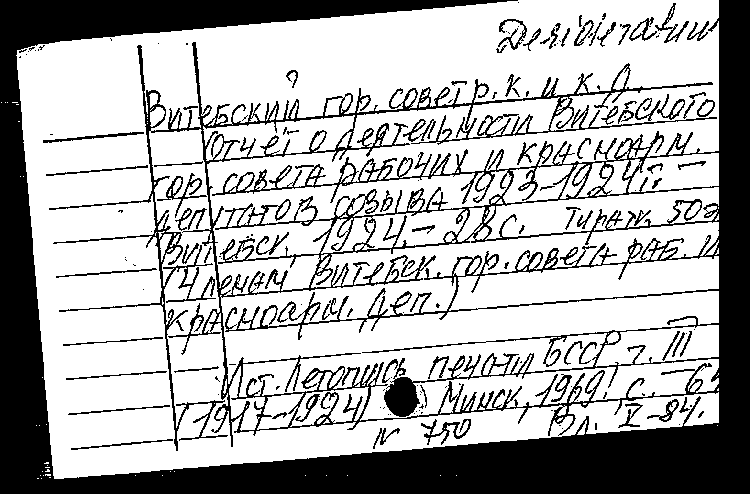 Desideratum
Витебский гор. совет р. к. и к. д.
Отчет о деятельности Витебского
гор. совета рабочих и красноарм.
депутатов созыва 1923-1924 гг. —
Витебск, 1924. — 28 с. Тираж 50
(Членам Витебск. гор. совета раб. и
красноарм. деп.)
Ист. Летопись печати БССР, т. III
(1917-1924) Минск, 1969, с.
N 750 Вл. V-84.